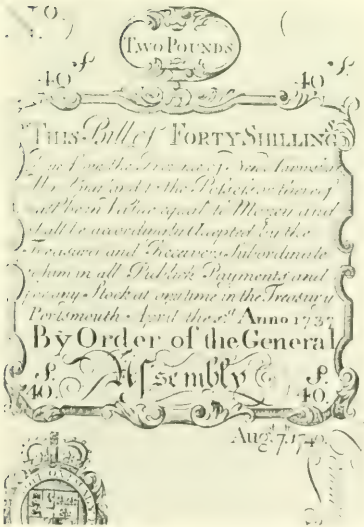 TWO POUNDS
40 s. 40 s.
THIS Bill of FORTY SHILLINGS
Due from the Province of New Hampshire
the Possessor thereof
shall be in Value equal to Money and
shall be accordingly Accepted by the
Treasurer and Receivers Subordinate
to him in all Publick Payments and
for any Stock at any time in the Treasury
Portsmouth April the Anno 1737
By Order of the General
Assembly
40 s. 40 s.
Aug. 7. 1740.